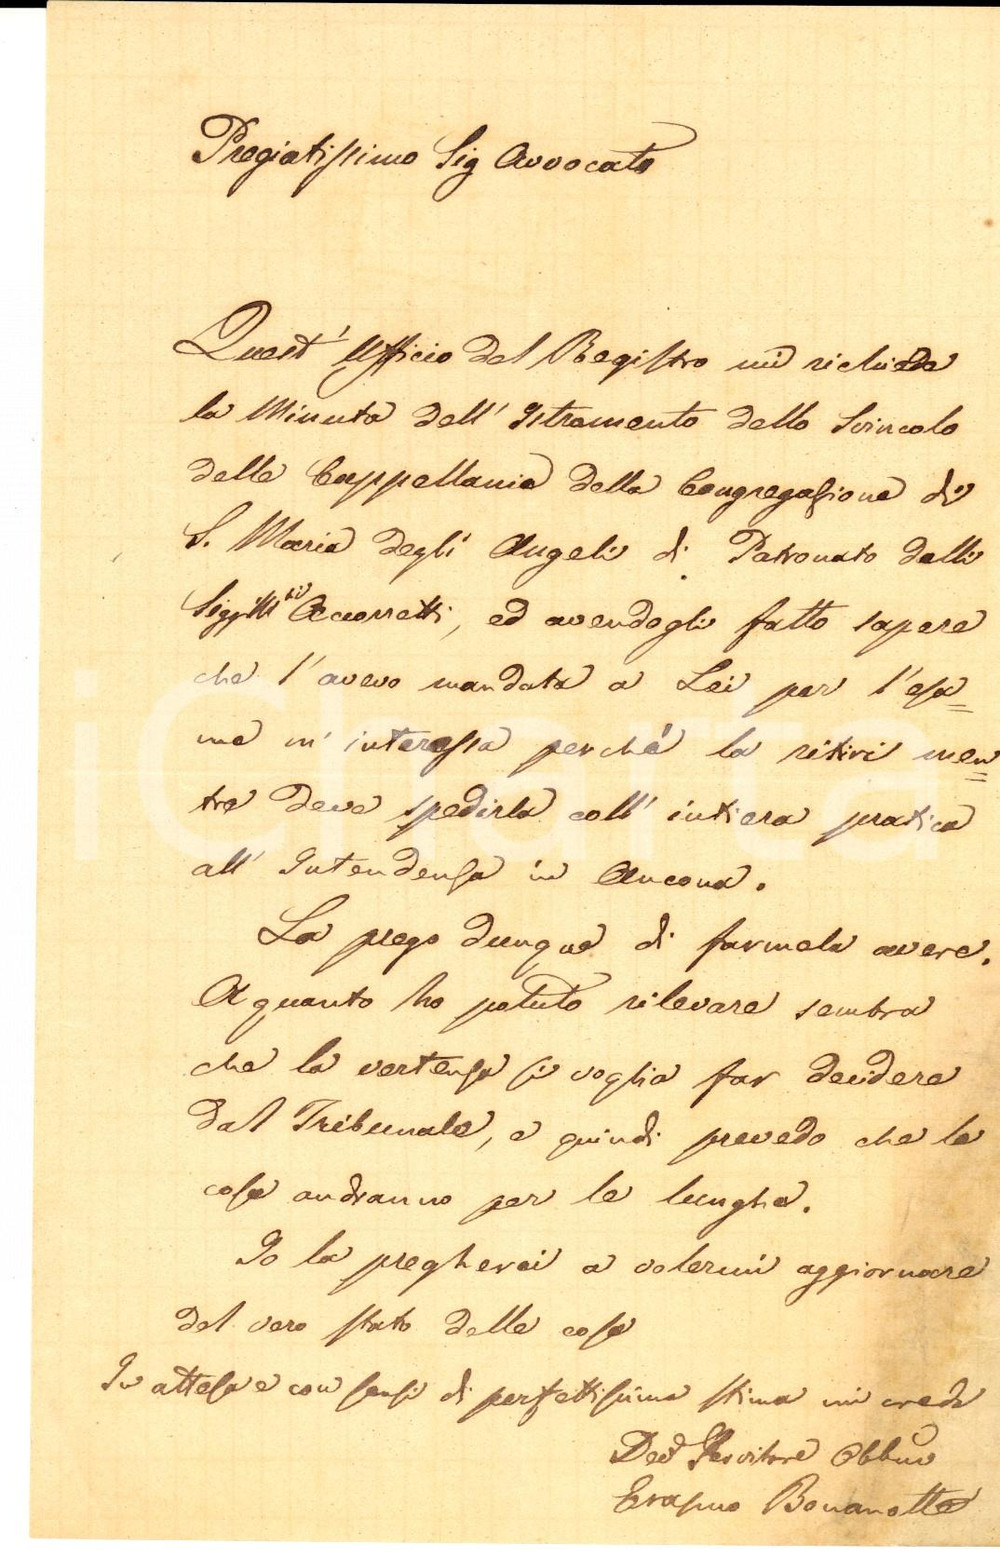 Pregiatissimo Sig Avvocato
Quest' Ufficio del Registro mi richiede
la Minuta dell' Istramento dello Svincolo
delle Cappellania della Congregazione di
S. Maria degli Angeli di Patronato delli
Sigg. Accorretti, ed avendogli fatto sapere
che l' avevo mandata a Lei per l' esa=
me m' interessa perchè la ritiri men=
tre deve spedirla coll' intiera pratica
all' Intendenza in Ancona.
La prego dunque di farmela avere.
A quanto ho potuto rilevare sembra
che la vertenza si voglia far decidere
dal Tribunale, e quindi prevedo che le
cose andranno per le lunghe.
Io la pregherei a volermi aggiornare
del vero stato delle cose
In attesa e con sensi di perfettissima stima mi creda
Servitore Obbmo
Erasmo Bonanotte
iCharta